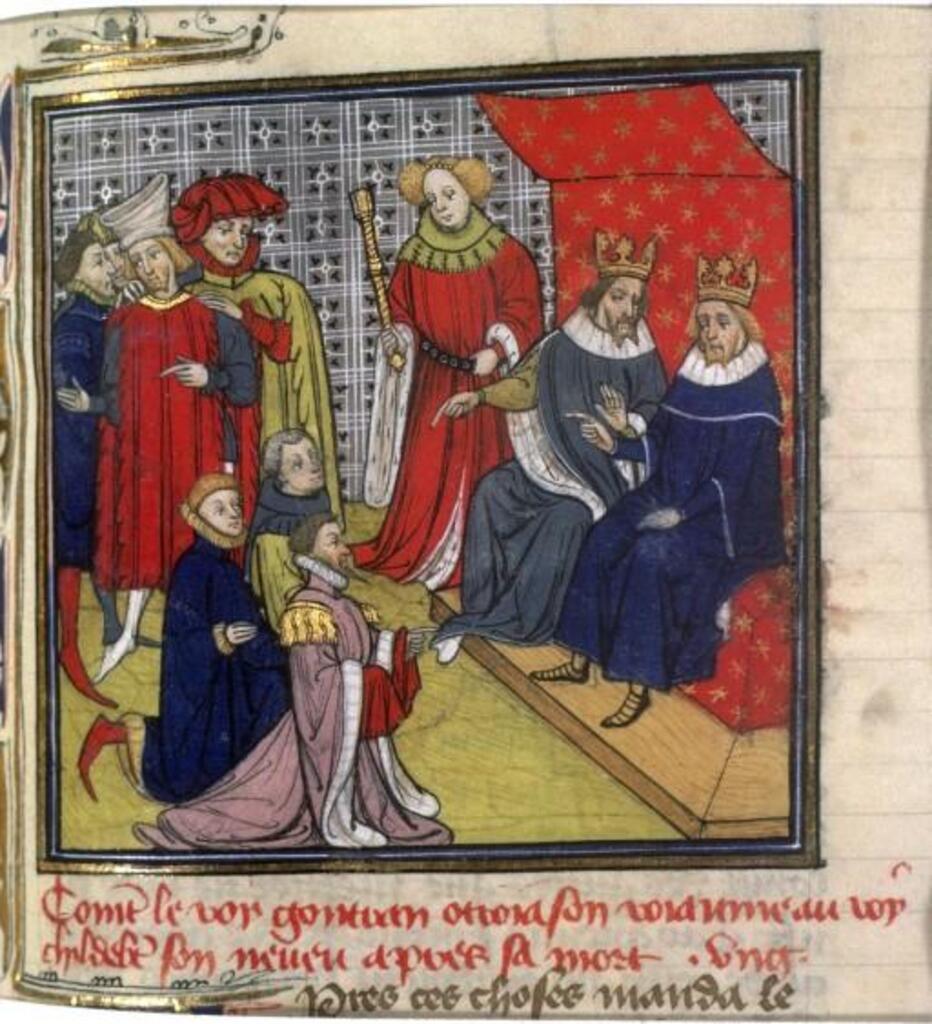 Comēt le roy gontran otroia son roiaume au roy
childebt̄ son neueu apres sa mort . vng.
Pres ces choses manda le